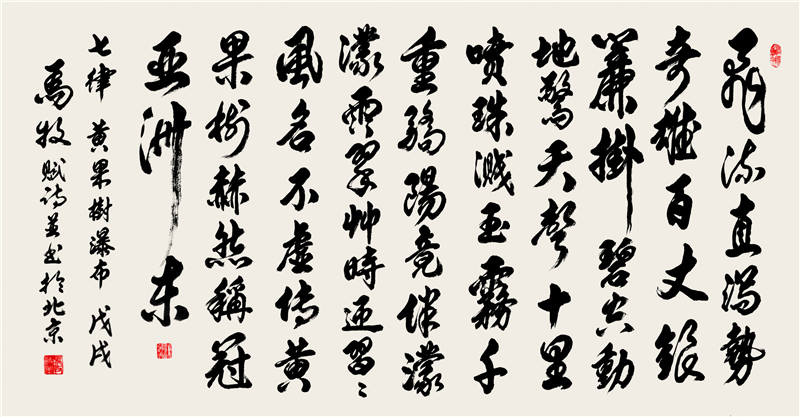 飛流直瀉勢
奇雄百丈銀
簾掛碧空動
地驚天聲十里
喷珠溅玉霧千
重驕陽竟伴濛
濛雨翠艸時迎習〻
風名不虛传黄
果樹赫然稱冠
亞洲東
七律 黄果樹瀑布 戊戌
馬牧赋诗並书於北京